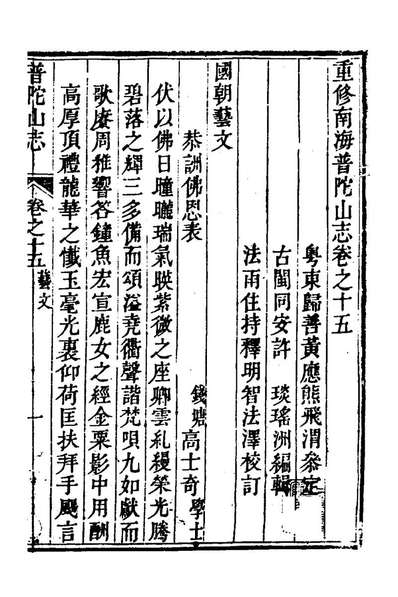 重修南海普陀山志卷之十五
粵東歸善黃應熊飛渭叅定
古閩同安許　琰瑤洲編輯
法雨住持釋明智法澤校訂
國朝藝文
恭詶佛恩表
錢塘高士奇學士
伏以佛日曈曨瑞氣暎紫微之座卿雲糺縵榮光騰
碧落之輝三多備而頌溢堯衢聲諧梵唄九如獻而
歌賡周雅響答鐘魚宏宣鹿女之經金粟影中用酬
高厚頂禮龍華之懺玉毫光裏仰荷匡扶拜手颺言
普陀山志
卷之十五
藝文
一